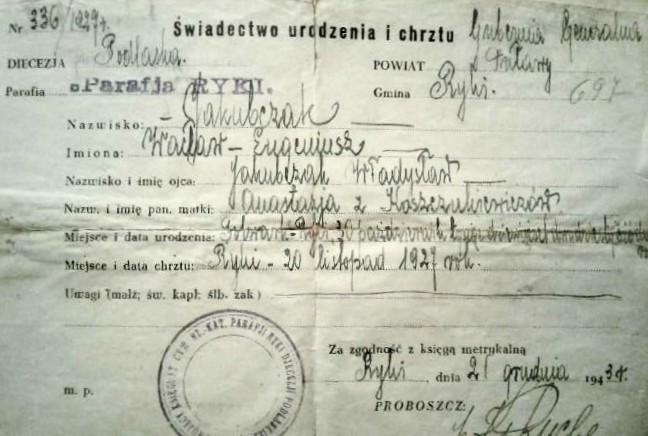 Nr 336/1927r. Świadectwo urodzenia i chrztu Gubernja Generalna
DIECEZJA Podlaska. POWIAT Puławy
Parafia Parafja RYKI. Gmina Ryki. 697
Nazwisko: – Jakubczak –
Imiona: Wacław – Eugenjusz –
Nazwisko i imię ojca: Jakubczak Władysław –
Nazw. i imię pan. matki: Anastazja z Koszczukiewiczów
Miejsce i data urodzenia: Ryki 30 październik
Miejsce i data chrztu: Ryki – 20 listopad 1927 rok.
Uwagi (małż; św. kapł; ślb. zak)
Za zgodność z księgą metrykalną
Ryki, dnia 21 grudnia 1943r.
m. p. PROBOSZCZ:
RZ.-KAT. PARAFJI RYKI DJECEZJI